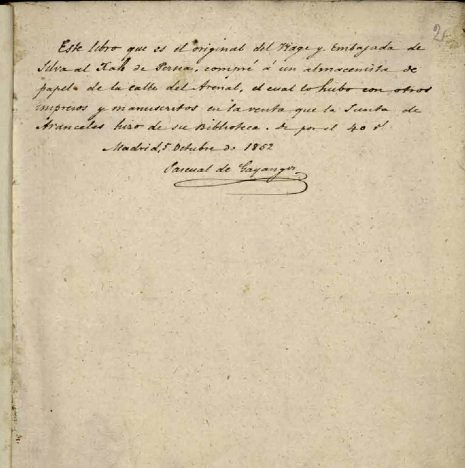 2
Este libro que es el original del Viage y Embajada de
Silva al Xah de Persia, compré á un almacenista de
papel de la calle del Arenal, el cual lo hubo con otros
impresos y manuscritos en la venta que la Junta de
Aranceles hizo de su Biblioteca. por 40 rs
Madrid, 5 Octubre de 1862
Pascual de Gayangos